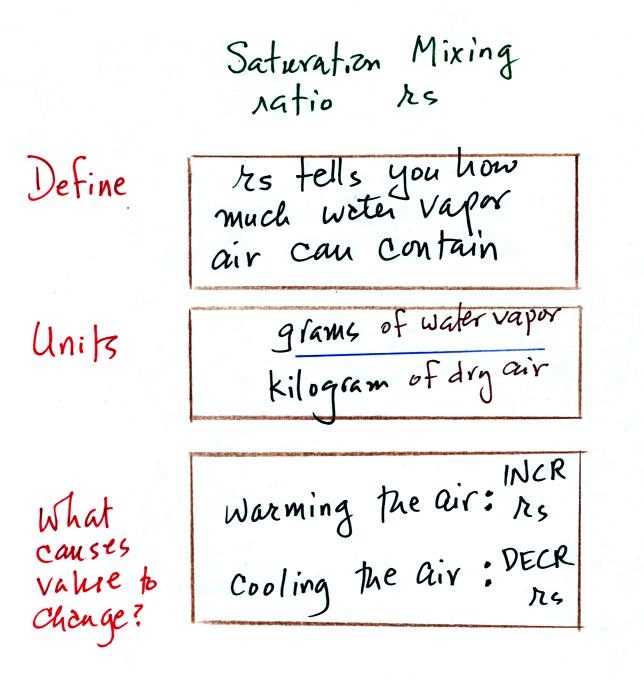 Saturation Mixing
ratio rs
Define
rs tells you how
much water vapor
air can contain
Units
grams of water vapor
kilogram of dry air
What
causes
value to
change?
Warming the air: INCR
rs
Cooling the air: DECR
rs